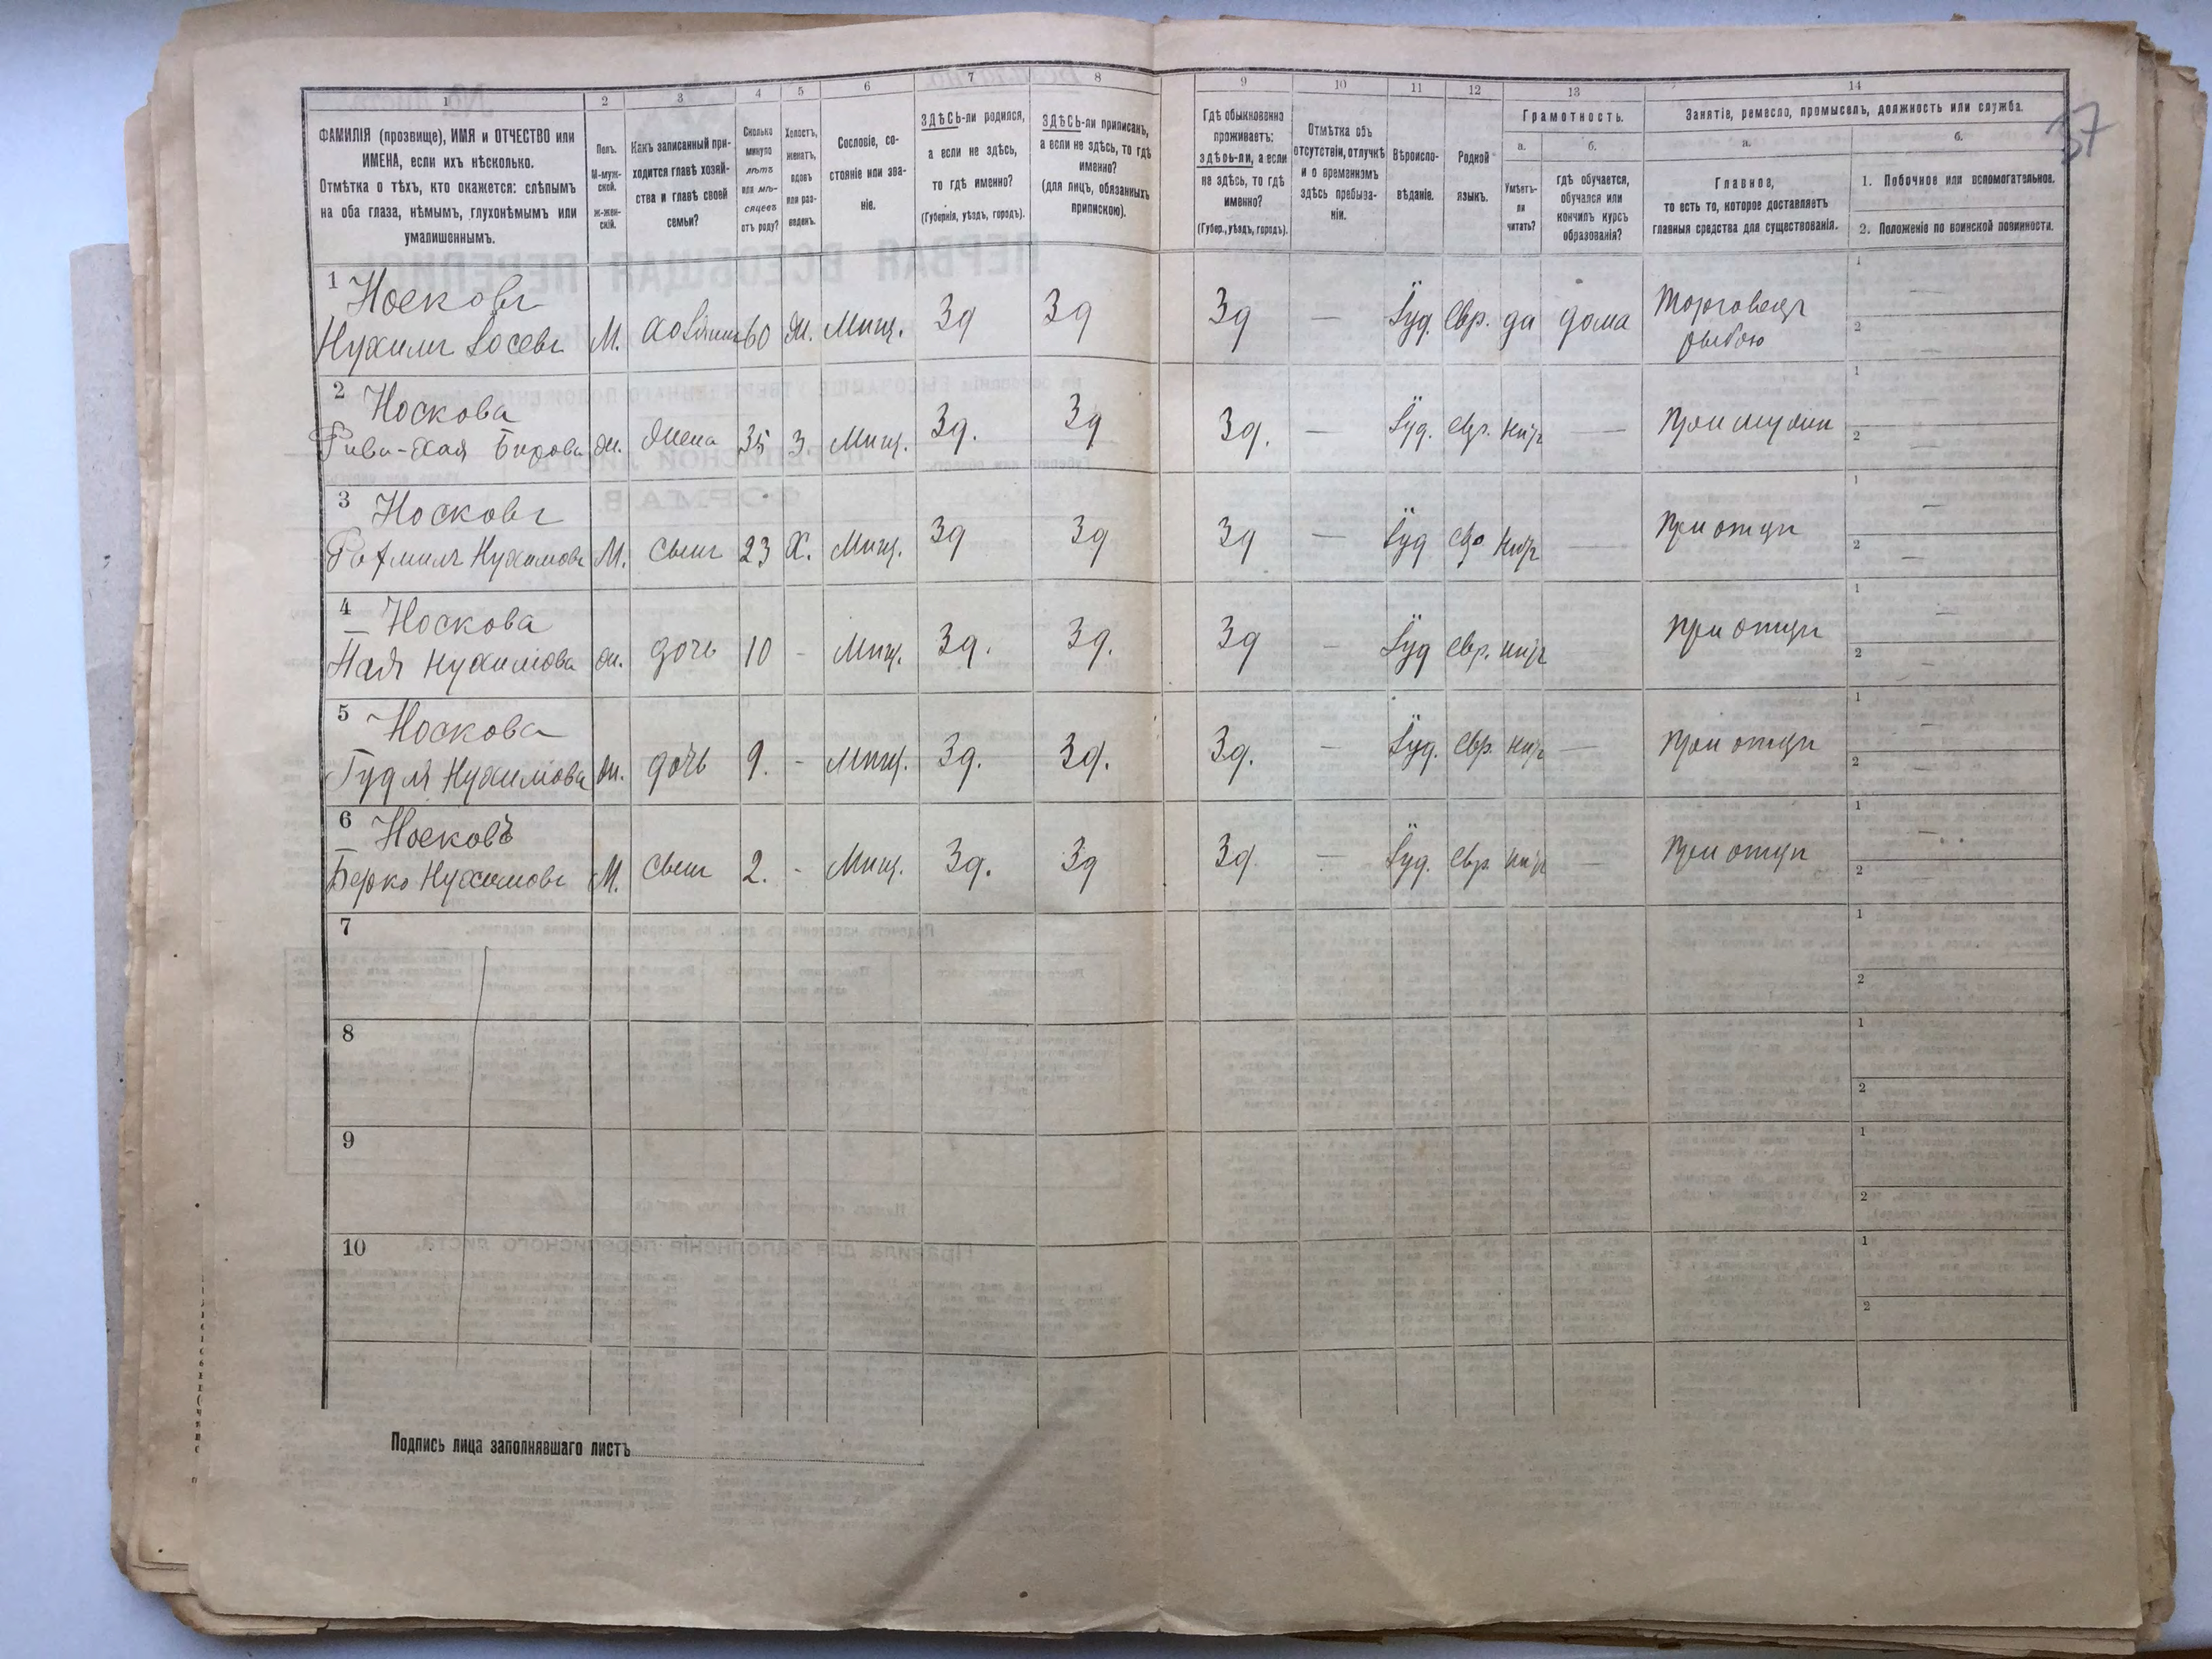 37
1
2
3
4
5
6
7
8
9
10
11
12
13
14
ФАМИЛІЯ (прозвище), ИМЯ и ОТЧЕСТВО или
ИМЕНА, если ихъ нѣсколько.
Отмѣтка о тѣхъ, кто окажется: слѣпымъ
на оба глаза, нѣмымъ, глухонѣмымъ или
умалишеннымъ.
Полъ.
М-муж-
ской.
Ж-жен-
скій.
Какъ записанный при-
ходится главѣ хозяй-
ства и главѣ своей
семьи?
Сколько
минуло
лѣтъ
или мѣ-
сяцевъ
отъ роду?
Холостъ,
женатъ,
вдовъ
или раз-
веденъ.
Сословіе, со-
стояніе или зва-
ніе.
ЗДѢСЬ-ли родился,
а если не здѣсь,
то гдѣ именно?
(Губернія, уѣздъ, городъ).
ЗДѢСЬ-ли приписанъ,
а если не здѣсь, то гдѣ
именно?
(для лицъ, обязанныхъ
припискою).
Гдѣ обыкновенно
проживаетъ:
здѣсь-ли, а если
не здѣсь, то гдѣ
именно?
(Губер., уѣздъ, городъ).
Отмѣтка объ
отсутствіи, отлучкѣ
и о временномъ
здѣсь пребыва-
ніи.
Вѣроиспо-
вѣданіе.
Родной
языкъ.
Грамотность.
а.
Умѣетъ-
ли
читать?
б.
гдѣ обучается,
обучался или
кончилъ курсъ
образованія?
Занятіе, ремесло, промыселъ, должность или служба.
а.
Главное,
то есть то, которое доставляетъ
главныя средства для существованія.
б.
1. Побочное или вспомогательное.
2. Положеніе по воинской повинности.
1 Носковъ
Нухимъ Іосевъ М. хозяинъ 60 ж. Мѣщ. Зд Зд Зд — Іуд. Евр. да дома Торговецъ
рыбою
1 —
2 —
2 Носкова
Рива-Хая Беркова ж. Жена 35 З. Мѣщ. Зд. Зд Зд. — Іуд. Евр. нѣтъ — При мужѣ
1 —
2 —
3 Носковъ
Нухимовъ М. Сынъ 23 Х. Мѣщ. Зд Зд Зд — Іуд Евр нѣтъ — При отцѣ
1 —
2 —
4 Носкова
Нухимова ж. дочь 10 - Мѣщ. Зд. Зд. Зд — Іуд Евр. нѣтъ При отцѣ
1 —
2 —
5 Носкова
Гудля Нухимова ж. дочь 9. - Мѣщ. Зд. Зд. Зд. — Іуд. Евр. нѣтъ — При отцѣ
1 —
2 —
6 Носковъ
Берко Нухимовъ М. Сынъ 2. - Мѣщ. Зд. Зд Зд — Іуд. Евр. нѣтъ — При отцѣ
1 —
2 —
7
1
2
8
1
2
9
1
2
10
1
2
Подпись лица заполнявшаго листъ